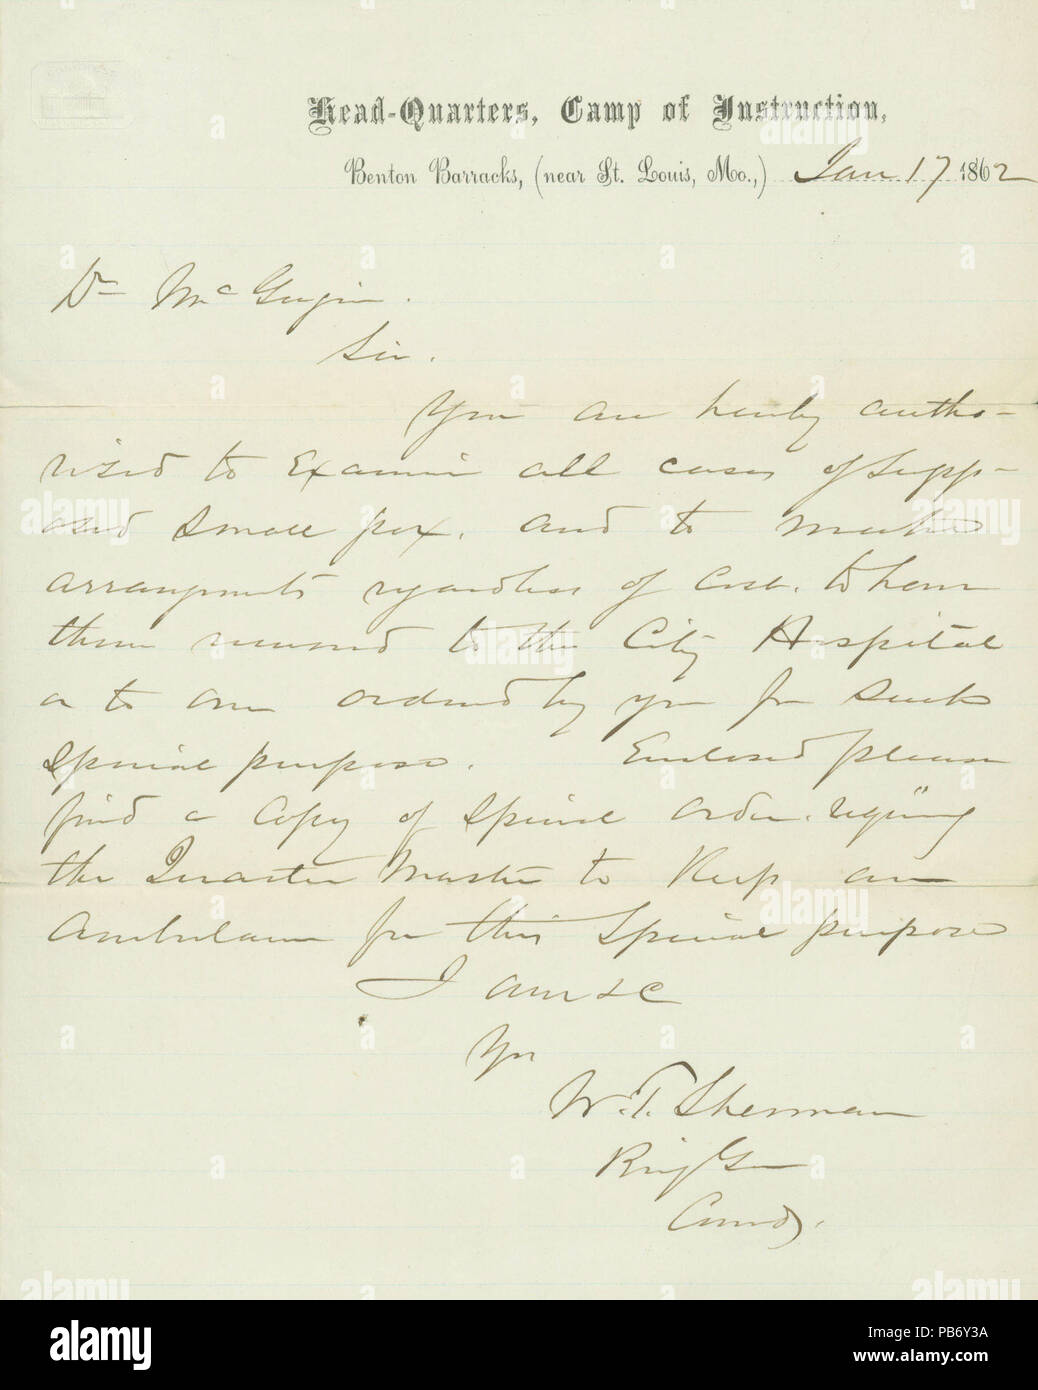 Head-Quarters, Camp of Instruction,
Benton Barracks, (near St. Louis, Mo.,) Jan 17 1862
Dr McGugin.
Sir.
You are hereby autho-
rised to Examine all cases of supp-
osed small pox. and to make
arrangements regardless of cost. to have
them removed to the City Hospital
or to one ordered by you for such
special purpose. Enclosed please
find a Copy of Special Order. requiring
the Quarter Master to Keep an
Ambulance for this Special purpose
I am &c
Yr
W. T. Sherman
Brig Gen
Comdg.
alamy
Image ID: PB6Y3A
www.alamy.com